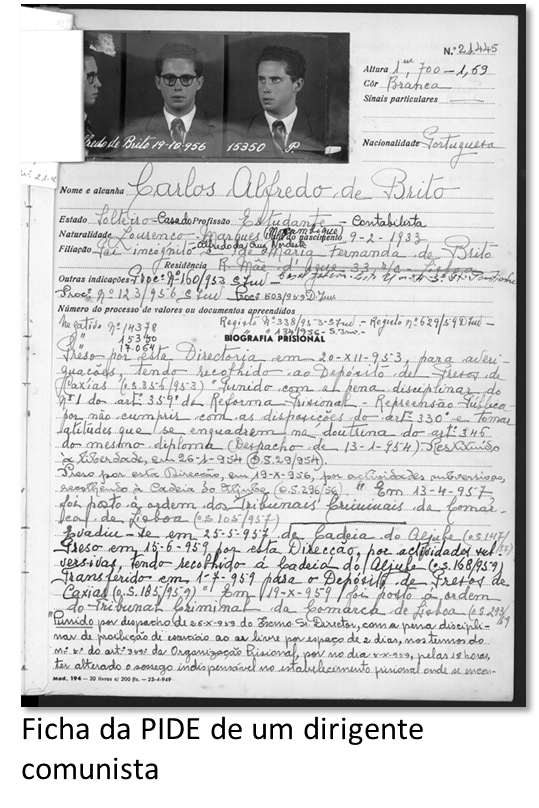 N.º 21445
Altura 1m,700 - 1,69
Côr Branca
Sinais particulares
Nacionalidade Portuguesa
Alfredo de Brito 19-10-956 15350 P.
Nome e alcunha Carlos Alfredo de Brito
Estado Solteiro - Casado Profissão Estudante - Contabilista
Naturalidade Lourenço Marques Moçambique Data do nascimento 9-2-1933
Filiação Pai incógnito e de Maria Fernanda de Brito
Alfredo da Cruz Nordeste
Residência R. Mãe d'Água 33, r/c - Lisboa
Outras indicações Proc.º N.º 160/953
Proc.º N.º 123/956 Proc.º 503/959
Número do processo de valores ou documentos apreendidos
Negativo N.º 14378 Registo N.º 338/953 - Registo N.º 629/59
" " 15350 " 134/956
" " 17.064
BIOGRAFIA PRISIONAL
Preso por esta Directoria em 20-XII-953, para averi-
guações, tendo recolhido ao Depósito de Presos de
Caxias (O.S. 356/953) Punido com a pena disciplinar do
n.º 1 do art.º 359.º da Reforma Prisional - Repreensão Pública
por não cumprir com as disposições do art.º 330.º e tomar
atitudes que se enquadrem na doutrina do art.º 345
do mesmo diploma (Despacho de 13-1-954) Restituido
à liberdade, em 26-1-954 (O.S. 29/954).
Preso por esta Direcção, em 19-X-956, por actividades subversivas,
recolhendo à Cadeia do Aljube (O.S. 296/56) "Em 13-4-957,
foi posto à ordem dos Tribunais Criminais da Comar-
ca de Lisboa (O.S. 105/957)
Evadiu-se em 25-5-957, da Cadeia do Aljube (O.S. 147/57)
Preso em 15-6-959 por esta Direcção, por actividades sub-
versivas, tendo recolhido à Cadeia do Aljube (O.S. 168/959)
Transferido em 1-7-959 para o Depósito de Presos de
Caxias (O.S. 185/959) "Em 19-X-959, foi posto à ordem
do Tribunal Criminal da Comarca de Lisboa (O.S. 293/59
"Punido por despacho de X-959 do Exmo Sr. Director, com a pena discipli-
nar de proibição de exercício ao ar livre por espaço de 2 dias, nos termos do
n.º da Organização Prisional, por no dia pelas 18 horas,
ter alterado o sossego indispensável no estabelecimento prisional onde se encon-
Mod. 194 - 20 livros c/ 200 fls. - 23-4-949
Ficha da PIDE de um dirigente
comunista